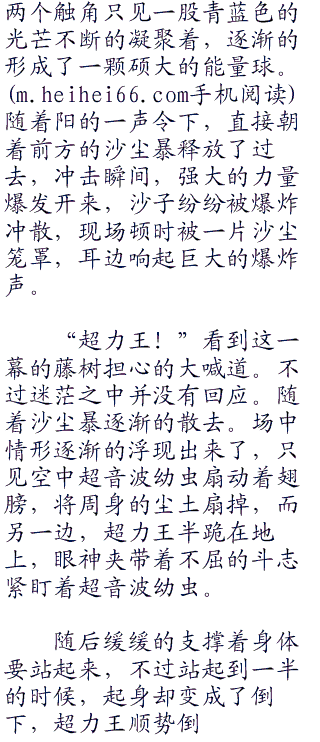 两个触角只见一股青蓝色的
光芒不断的凝聚着，逐渐的
形成了一颗硕大的能量球。
(m.heihei66.com手机阅读)
随着阳的一声令下，直接朝
着前方的沙尘暴释放了过
去，冲击瞬间，强大的力量
爆发开来，沙子纷纷被爆炸
冲散，现场顿时被一片沙尘
笼罩，耳边响起巨大的爆炸
声。
“超力王！”看到这一
幕的藤树担心的大喊道。不
过迷茫之中并没有回应。随
着沙尘暴逐渐的散去。场中
情形逐渐的浮现出来了，只
见空中超音波幼虫扇动着翅
膀，将周身的尘土扇掉，而
另一边，超力王半跪在地
上，眼神夹带着不屈的斗志
紧盯着超音波幼虫。
随后缓缓的支撑着身体
要站起来，不过站起到一半
的时候，起身却变成了倒
下，超力王顺势倒